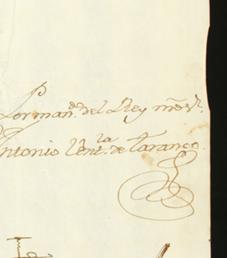 Por man.^do del Rey nr̃o S.^r
Antonio Vent.^ra de Taranco.